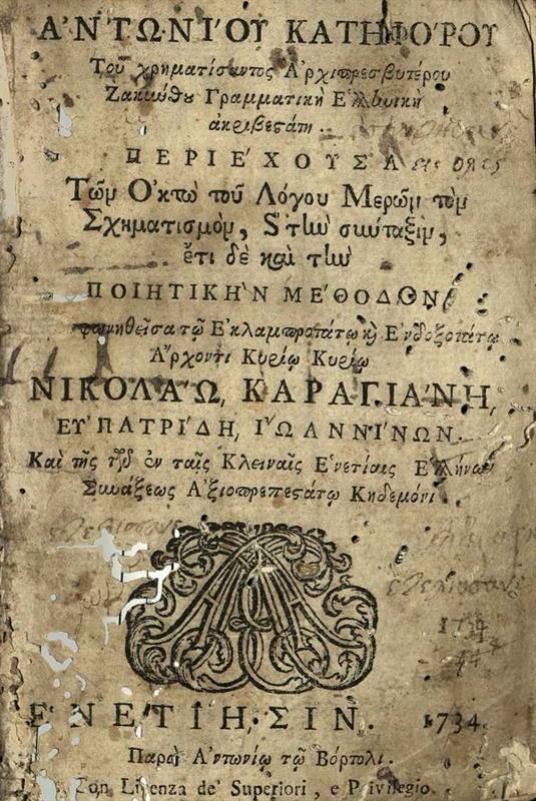 ἈΝΤΩΝΊΟΥ ΚΑΤΗΦΌΡΟΥ
Τοῦ χρηματίσαντος Ἀρχιπρεσβυτέρου
Ζακύνθου Γραμματικὴ Ἑλληνικὴ
ἀκριβεστάτη.
ΠΕΡΙΈΧΟΥΣΑ
Τῶν Ὀκτὼ τοῦ Λόγου Μερῶν τὸν
Σχηματισμὸν, ϗ τὴν σύνταξιν,
ἔτι δὲ καὶ τὴν
ΠΟΙΗΤΙΚῊΝ ΜΈΘΟΔΟΝ
τῷ Ἐκλαμπροτάτῳ ϗ Ἐνδοξοτάτῳ
Ἄρχοντι Κυρίῳ Κυρίῳ
ΝΙΚΟΛΆΩ, ΚΑΡΑΓΙΆΝΗ,
ΕΥ̓ΠΑΤΡΊΔΗ, ἸΩΑΝΝΊΝΩΝ.
Καὶ τῆς τῶν ἐν ταῖς Κλειναῖς Ἐνετίαις Ἑλλήνων
Συνάξεως Ἀξιοπρεπεστάτῳ Κηδεμόνι.
1734
ἘΝΕΤΊΗΣΙΝ. 1734.
Παρὰ Ἀντωνίῳ τῷ Βόρτολι.
Con Licenza de' Superiori, e Privilegio.